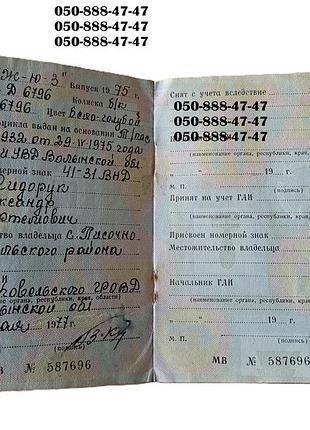 050-888-47-47
050-888-47-47
050-888-47-47
Ж-Ю-3" Выпуск 1975 г.
Д 6796 Коляска б/к
6796 Цвет Бело-голубой
цикла выдан на основании
932 от 29. IV 1975 года
УВД Волынской обл
мерной знак 41-31 ВНД
Сидорук
ксандр
ртемович
ство владельца с. Песочно
льского района
овельского ГРОВД
органа, республики, края, области)
ынской обл
1977 г.
(подпись)
МВ № 587696
Снят с учета вследствие
050-888-47-47
050-888-47-47
050-888-47-47
(наименование органа, республики, края,
" " 19 г.
М. П. (подпись)
Принят на учет ГАИ
(наименование органа, республики, края,
Присвоен номерной знак
Местожительство владельца
Начальник ГАИ
(наименование органа, республики, края,
" " 19 г.
М. П. (подпись)
МВ № 587696